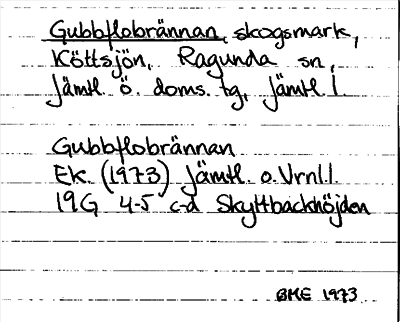 Gubbflobrännan, skogsmark,
Köttsjön, Ragunda sn,
Jämtl. ö. doms. tg, Jämtl. l.
Gubbflobrännan
Ek. (1973) Jämtl. o. Vrnl. l.
19G 4-5 c-d Skyttbackhöjden
BME 1973